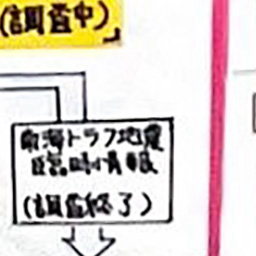 (調査中)
南海トラフ地震
臨時情報
(調査終了)